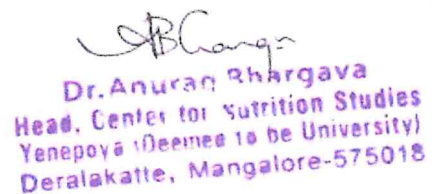 Dr. Anurag Bhargava
Head, Center for Nutrition Studies
Yenepoya (Deemed to be University)
Deralakatte, Mangalore-575018